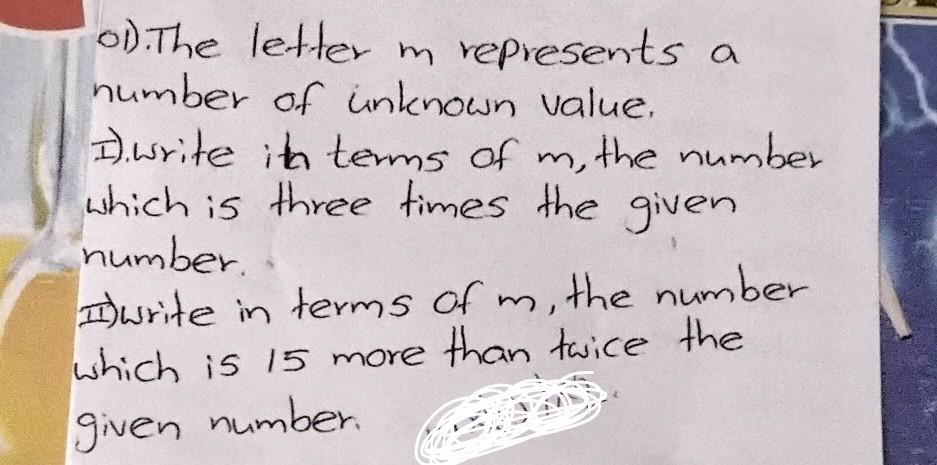 01).The letter m represents a
number of unknown value.
I).write in terms of m, the number
which is three times the given
number.
II)write in terms of m, the number
which is 15 more than twice the
given number.